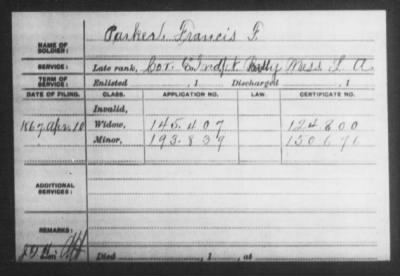 NAME OF SOLDIER: Parker, Francis F.
SERVICE: Late rank, Cor. E. Indpt Batty Mass L A
TERM OF SERVICE: Enlisted , 1 Discharged , 1
DATE OF FILING. CLASS. APPLICATION NO. LAW. CERTIFICATE NO.
Invalid,
1867 Apr 10 Widow, 145.407 124800
Minor, 193.839 150676
ADDITIONAL SERVICES:
REMARKS:
Died , 1 , at